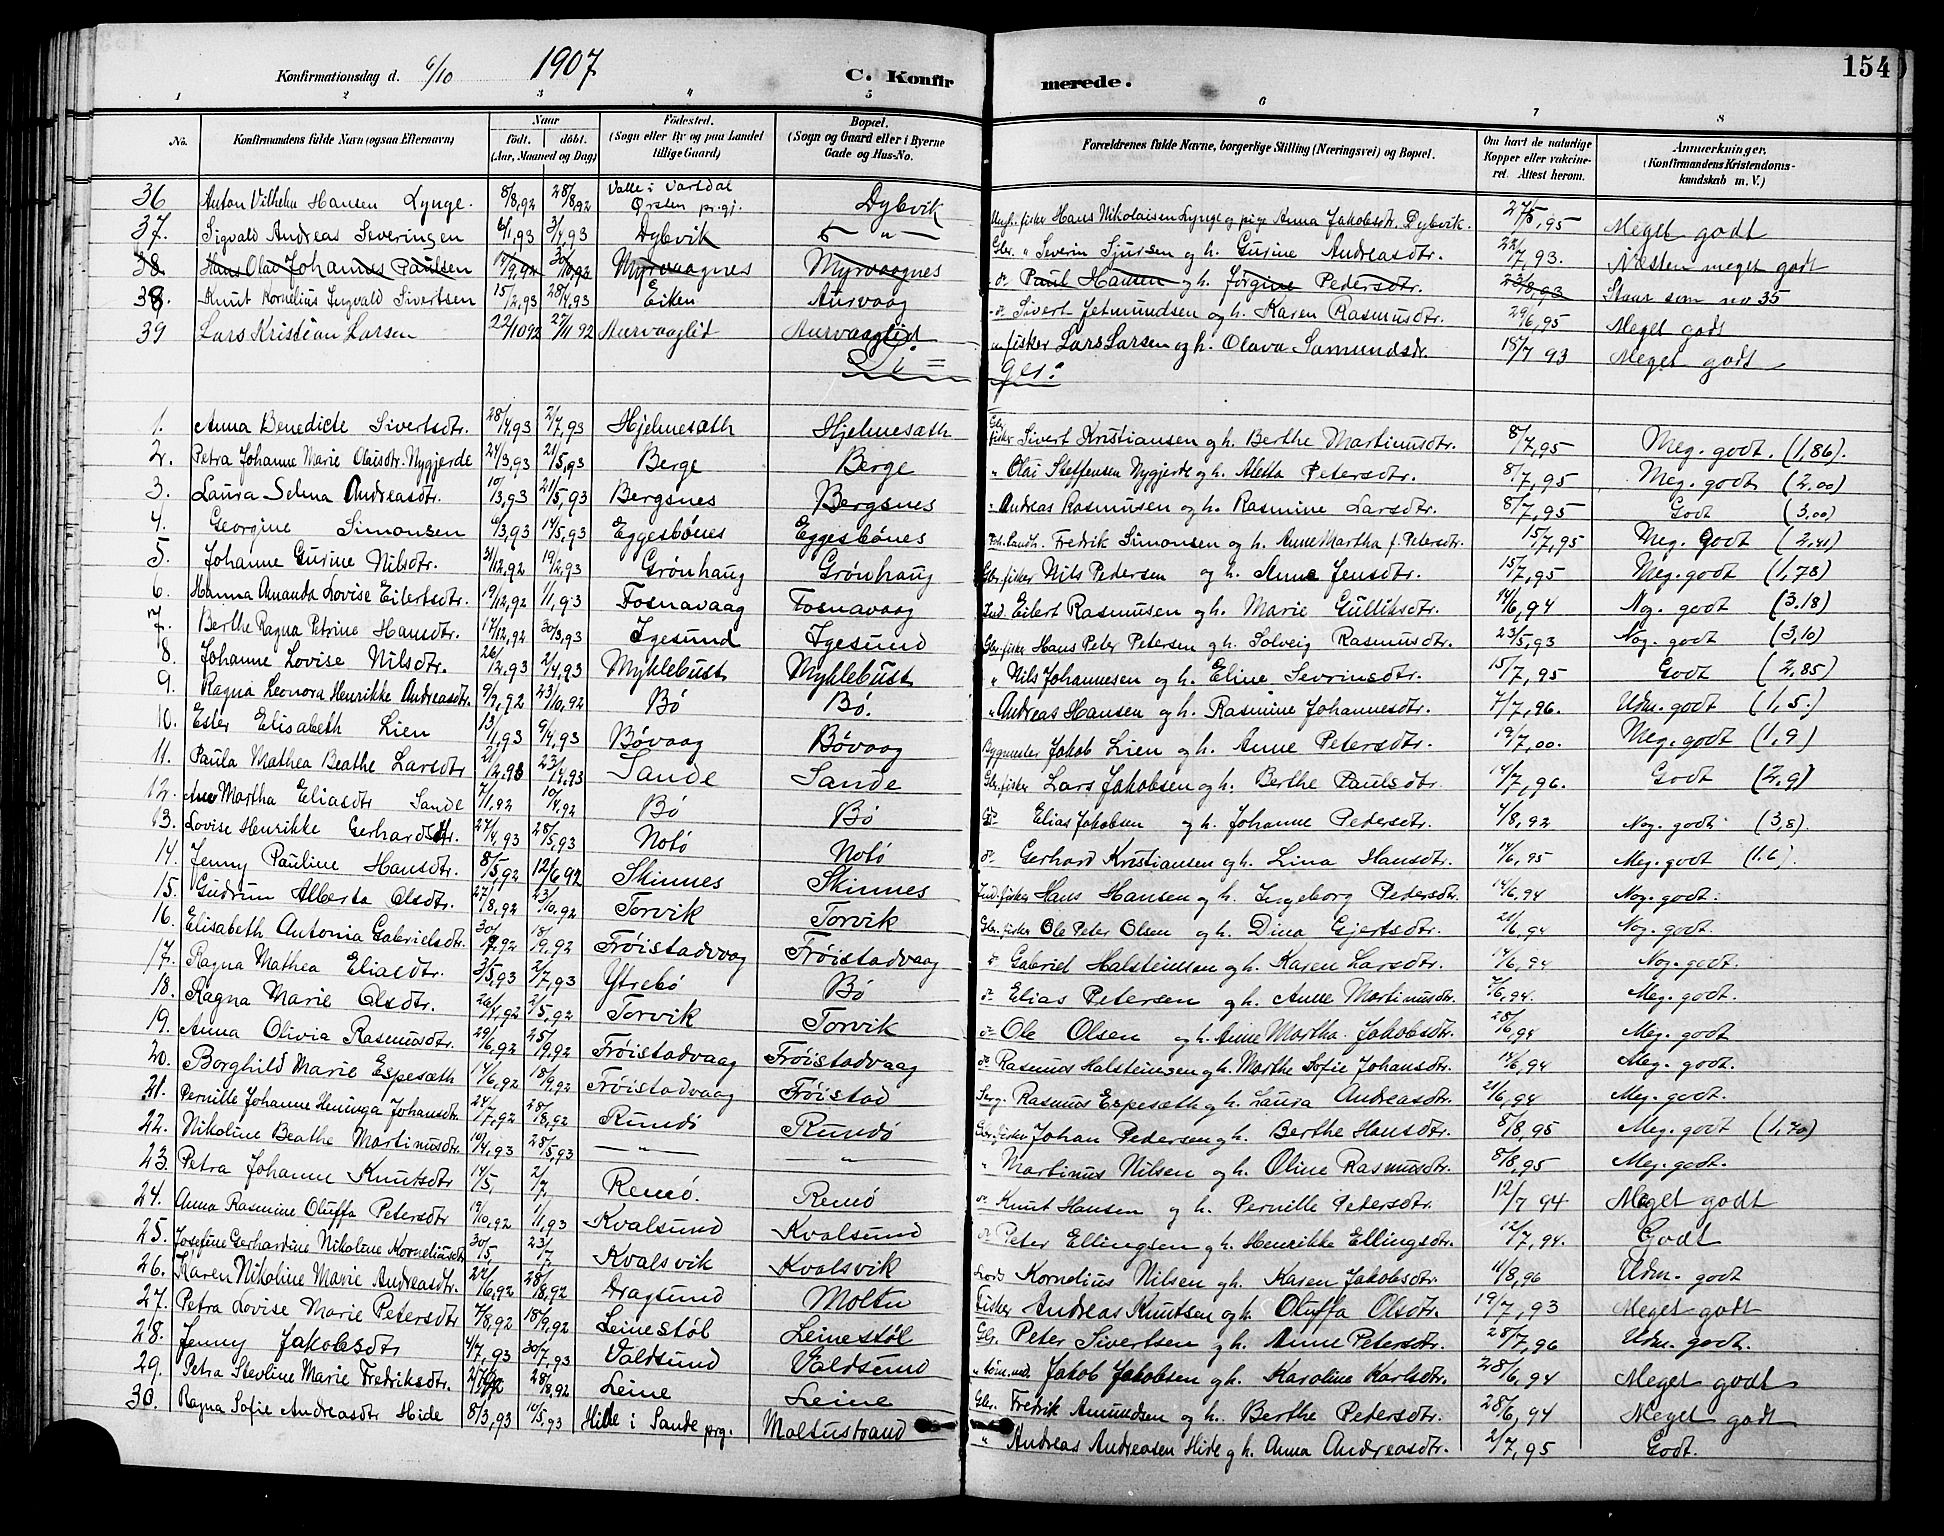 154
Konfirmationsdag d. 6/10 1907 C. Konfirmerede.
1 2 3 4 5 6 7 8
No. Konfirmandens fulde Navn (ogsaa Efternavn) Naar født. døbt. (Aar, Maaned og Dag) Fødested. (Sogn eller By og paa Landet tillige Gaard) Bopæl. (Sogn og Gaard eller i Byerne Gade og Hus-No. Forældrenes fulde Navne, borgerlige Stilling (Næringsvei) og Bopæl. Om havt de naturlige Kopper eller vakcineret. Attest herom. Anmærkninger. (Konfirmandens Kristendomskundskab m. V.)
36 Anton Vilhelm Hansen Lynge. 8/8,92 28/8,92 Valle i Vartdal Ørsten prgj. Dybvik fisker Hans Nikolaisen Lynge og pige Anna Jakobsdr. Dybvik. 27/5,95 Meget godt
37. Sigvald Andreas Severinsen 6/1,93 3/4,93 Dybvik — " — Gbr. " Severin Sjursen og h. Gurine Andreasdtr. 22/7,93. Næsten meget godt
38 Hans Olai Johannes Paulsen 14/9,92 30/10,92 Myrvaagnes Myrvaagnes do Paul Hansen og h. Jørgine Pedersdtr. 23/8,93 Staar som no 35
38. Knut Kornelius Ingvald Sivertsen 15/2,93 28/4,93 Eiken Aurvaag do Sivert Jetmundsen og h. Karen Rasmusdtr. 29/6,95 Meget godt
39 Lars Kristian Larsen 22/10 92 27/11 92 Aurvaaglid Aurvaaglid " fisker Lars Larsen og h. Olava Samundsdr. 18/7 93 Meget godt
Pi= ger:
1. Anna Benedicte Sivertsdtr. 28/4,93 2/7,93 Hjelmesæth Hjelmesæth Gbr. fisker Sivert Kristiansen gh. Berthe Martinusdtr. 8/7,95 Meg. godt. (1,86).
2. Petra Johanne Marie Olaisdtr. Nygjerde 24/3,93 21/5,93 Berge Berge " Olai Steffensen Nygjerde gh. Aletta Petersdtr. 8/7,95 Meg. godt (2,00)
3. Laura Selma Andreasdtr. 10/3,93 21/5,93 Bergsnes Bergsnes " Andreas Rasmusen og h. Rasmine Larsdtr. 8/7,95 Godt (3,00)
4. Georgine Simonsen 6/3,93 14/5,93 Eggesbönes Eggesbönes Fredrik Simonsen og h. Anne Martha f. Petersdtr. 15/7,95 Meg. godt (2,41)
5. Johanne Gurine Nilsdtr. 31/12,92 19/2,93 Grönhaug Grönhaug Gbr. fisker Nils Pedersen og h. Anne Jensdtr. 15/7,95 Meg. godt (1,78)
6. Hanna Amanda Lovise Eilertsdtr. 19/12,92 1/1,93 Fosnavaag Fosnavaag Ind. Eilert Rasmusen og h. Marie Gulliksdtr. 14/6,94 Nog. godt (3,18)
7. Berthe Ragna Petrine Hansdtr. 17/12,92 30/3,93 Igesund Igesund Gbr. fisker Hans Peter Petersen gh. Solveig Rasmusdtr. 23/5,93 Nog. godt (3,10)
8. Johanne Lovise Nilsdtr. 26/12,93 2/4,93 Myklebust Myklebust " Nils Johannesen og h. Eline Sevrinsdtr. 15/7,95 Godt (2,85)
9. Ragna Leonora Henrikke Andreasdtr. 9/7,92 23/10,92 Bö Bö. " Andreas Hansen og h. Rasmine Johannesdtr. 7/7,96. Udm. godt (1,5.)
10. Ester Elisabeth Lien 13/1,93 9/4,93 Bövaag Bövaag Bygmester Jakob Lien og h. Anne Petersdtr. 19/7,00. Meg. godt (1,9)
11. Paula Mathea Beathe Larsdtr 21/12,93 23/4,93 Sande Sande Gbr. fisker Lars Jakobsen og h. Berthe Paulsdtr. 14/7,96. Godt (2,9)
12. Martha Eliasdtr Sande 7/1,92 10/4,92 Bö Bö do Elias Jakobsen og h. Johanne Pedersdtr. 4/8,92 Nog. godt (3,8)
13. Lovise Henrikke Gerhardsdtr. 27/4,93 28/5,93 Notö Notö do Gerhard Kristiansen gh. Lina Hansdtr. 14/6,95 Meg. godt (1.6).
14. Jenny Pauline Hansdtr. 8/5,92 12/6 92 Skinnes Skinnes Ind. fisker Hans Hansen og h. Ingeborg Pedersdtr. 14/6,94 Nog. godt.
15. Gudrun Alberta Olsdtr. 27/8,92 23/10,92 Torvik Torvik Gbr. fisker Ole Peter Olsen og h. Dina Gjertsdtr. 21/6,94 Nog. godt.
16. Elisabeth Antonia Gabrielsdtr. 30/7,92 18/9,92 Fröistadvaag Fröistadvaag do Gabriel Halsteinsen og h. Karen Larsdtr. 14/6,94 Nog. godt.
17. Ragna Mathea Eliasdtr. 3/5,93 2/7,93 Ytrebö Bö do Elias Petersen og h. Anne Martinusdtr. 7/6,94. Meg. godt.
18. Ragna Marie Olsdtr. 26/4,92 2/5,92 Torvik Torvik do Ole Olsen og h. Anne Martha Jakobsdtr. 28/6,94 Meg. godt
19. Anna Olivia Rasmusdtr. 29/6,92 25/9,92 Fröistadvaag Fröistadvaag do Rasmus Halsteinsen gh. Marthe Sofie Johansdtr. 14/6,94 Meg. godt.
20. Borghild Marie Espesæth 14/6,92 18/9,92 Fröistadvaag Fröistad Rasmus Espesæth gh. Laura Andreasdtr. 21/6,94 Meg. godt.
21. Pernille Johanne Heninga Johansdtr. 24/7,92 28/8,92 Rundö Rundö Gbr. fisker Johan Pedersen gh. Berthe Hansdtr. 8/8,95 Meg. godt (1,70)
22. Nikoline Beathe Martinusdtr. 10/4,93 28/5,93 — " — " " Martinus Nilsen og h. Oline Rasmusdtr. 8/8,95 Meg. godt.
23. Petra Johanne Knutsdtr 14/5, 2/7, Remö. Remö do Knut Hansen og h. Pernille Petersdtr. 12/7 94 Meget godt
24. Anna Rasmine Oluffa Petersdtr 19/10,92 1/1,93 Kvalsund Kvalsund do Peter Ellingsen gh. Henrikke Ellingsdtr. 12/7,94. Godt
25. Josefine Gerhardine Nikoline Korneliusdtr 30/5 23/7 Kvalsvik Kvalsvik Kornelius Nilsen gh. Karen Jakobsdtr. 11/8,96 Udm. godt
26. Karen Nikoline Marie Andreasdtr. 22/6,92 28/8,92 Dragsund Moltu Fisker Andreas Knutsen og h. Oluffa Olsdtr. 19/7,93 Meget godt
27. Petra Lovise Marie Petersdtr 7/8,92 18/9,92 Leinestöl Leinestöl Gbr. Peter Sivertsen og h. Anne Petersdtr. 28/7,96 Udm. godt.
28. Jenny Jakobsdtr 4/7,93 30/7,93 Voldsund Voldsund " Jakob Jakobsen gh. Karoline Karlsdtr. 28/6,94 Meget godt
29. Petra Stevline Marie Fredriksdtr. 28/8,92 Leine Leine Gbr. Fredrik Amundsen og h. Berthe Petersdtr. 28/6,94 Meget godt
30. Ragna Sofie Andreasdtr Hide 8/3,93 10/5,93 Hide i Sande prg. Moltustrand " Andreas Andreasen Hide gh. Anna Andreasdtr. 2/7,95 Godt.